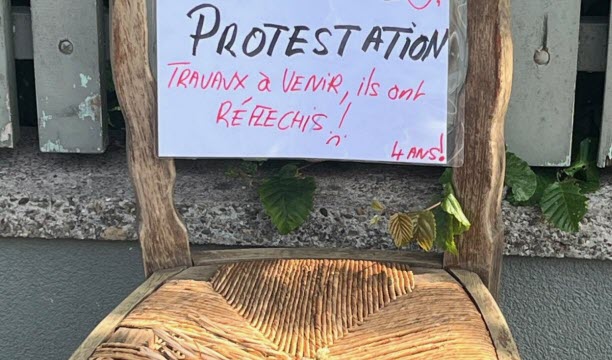 PROTESTATION
TRAVAUX à VENIR, ils ont
RÉFLECHIS!
4 ANS!